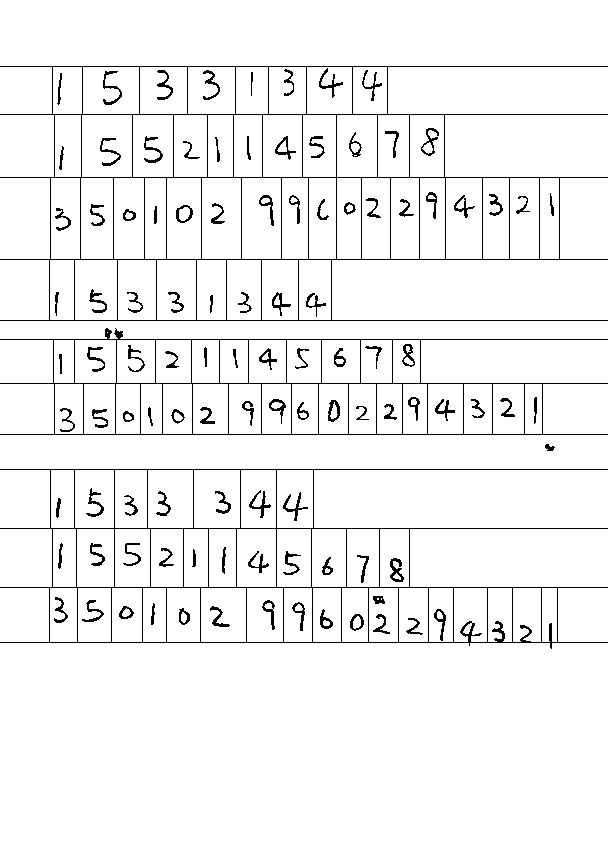 1 5 3 3 1 3 4 4
1 5 5 2 1 1 4 5 6 7 8
3 5 0 1 0 2 9 9 6 0 2 2 9 4 3 2 1
1 5 3 3 1 3 4 4
1 5 5 2 1 1 4 5 6 7 8
3 5 0 1 0 2 9 9 6 0 2 2 9 4 3 2 1
1 5 3 3 3 4 4
1 5 5 2 1 1 4 5 6 7 8
3 5 0 1 0 2 9 9 6 0 2 2 9 4 3 2 1